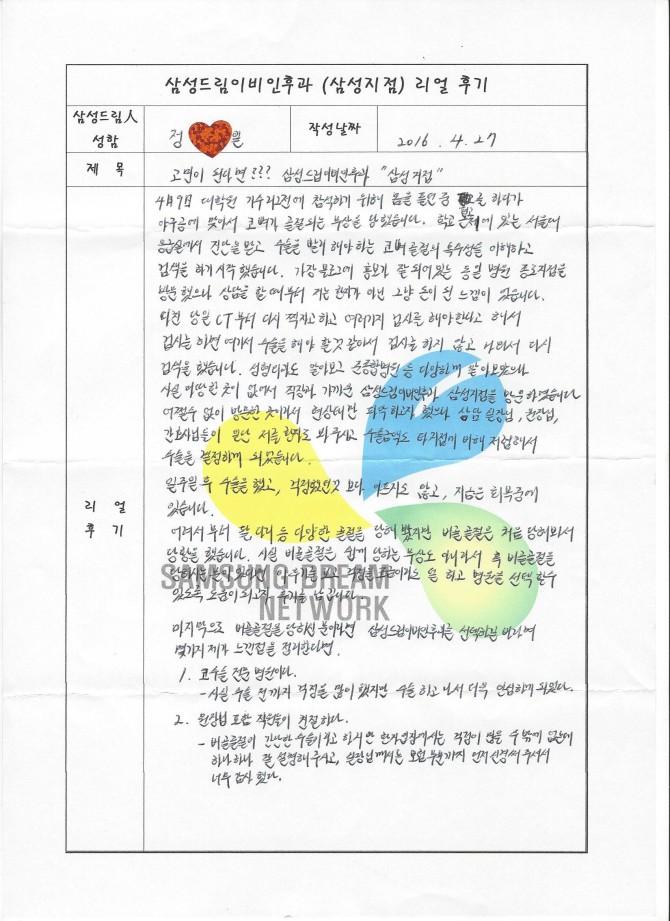 삼성드림이비인후과 (삼성지점) 리얼 후기
삼성드림人 성함
정 월
작성날짜
2016. 4. 27
제 목
고민이 된다면??? 삼성드림이비인후과 "삼성지점"
리 얼 후 기
4月9日 대학원 야구 참석하기 위해 몸을 풀던 중 를 하다가
야구공에 맞아서 코뼈가 골절되는 부상을 당했습니다. 학교 에 있는 서울대
응급실에서 진단을 받고 수술을 받게 해야 하는 코뼈 골절의 특수성을 이해하고
검색을 하기 시작했습니다. 가장 블로그에 홍보가 잘 되어있는 동일 병원 종로지점을
방문 했으나 상담을 할 때부터 저는 환자가 아닌 그냥 돈이 된 느낌이 있습니다.
당일 CT부터 다시 찍자고 하고 여러가지 검사를 해야한다고 해서
검사를 하면 여기서 수술을 해야 할것 같아서 검사를 하지 않고 나와서 다시
검색을 했습니다. 성형외과도 알아보고 종합병원 등 다양하게 알아보았으나
사실 마땅한 곳이 없어서 직장과 가까운 삼성드림이비인후과 삼성지점을 방문하였습니다
어쩔수 없이 방문한 곳이라서 현상태만 파악하고자 했으나 상담 실장님, 원장님,
간호사님들이 일단 서글 봐 주시고 수술금액도 타지점에 비해 저렴해서
수술을 결정하게 되었습니다.
일주일 후 수술을 했고, 걱정했던것 보다 아프지도 않고, 지금은 회복중에
있습니다.
어려서부터 팔 다리 등 다양한 골절을 당해 봤지만 비골골절은 처음 당해봐서
당황을 했습니다. 사실 비골골절은 쉽게 당하는 부상도 아니라서 혹 비골골절을
당하시는 분이 있다면 이 후기를 보고 걱정을 조금이라도 덜 하고 병원을 선택 할수
있도록 도움이 되고자 후기를 남깁니다.
마지막으로 비골골절을 당하신 분이라면 삼성드림이비인후과를 선택하길 바라며
몇가지 제가 느낀점을 정리한다면.
1. 코수술 전문 병원이다.
- 사실 수술 전까지 걱정을 많이 했지만 수술 하고 나서 더욱 안심하게 되었다.
2. 원장님 포함 직원들이 친절하다.
- 비골골절이 간단한 수술이라고 하지만 환자입장에서는 걱정이 앞설 수 밖에 없는데
하나하나 잘 설명해 주시고, 원장님께서는 부분까지 먼저 신경써 주셔서
너무 감사 했다.
SAMSUNG DREAM
NETWORK